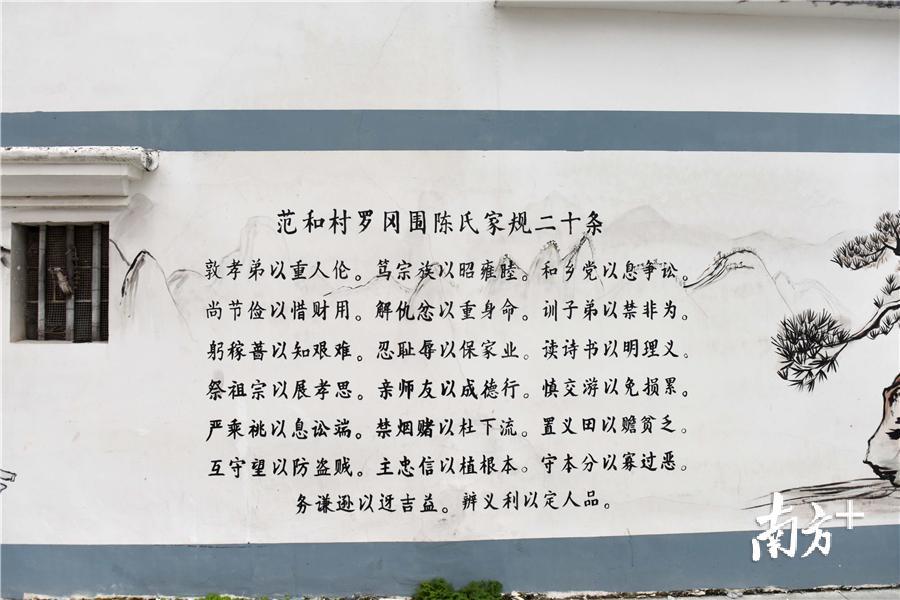 范和村罗冈围陈氏家规二十条
敦孝弟以重人伦。笃宗族以昭雍睦。和乡党以息争讼。
尚节俭以惜财用。解仇忿以重身命。训子弟以禁非为。
躬稼啬以知艰难。忍耻辱以保家业。读诗书以明理义。
祭祖宗以展孝思。亲师友以成德行。慎交游以免损累。
严乘祧以息讼端。禁烟赌以杜下流。置义田以赡贫乏。
互守望以防盗贼。主忠信以植根本。守本分以寡过恶。
务谦逊以迓吉益。辨义利以定人品。
南方+